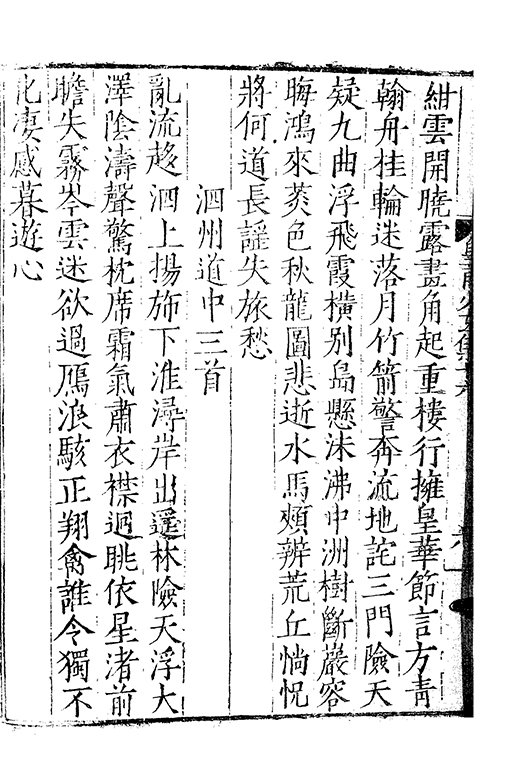 紺雲開曉露畫角起重樓行擁皇華節言方青
翰舟桂輪迷落月竹箭警奔流地詫三門險天
疑九曲浮飛霞橫别島懸沫沸中洲樹斷巖容
晦鴻來葖色秋龍圖悲逝水馬頰辨荒丘惝怳
將何道長謡失旅愁
泗州道中三首
亂流趍泗上揚斾下淮潯岸出遥林險天浮大
澤陰濤聲驚枕席霜氣肅衣襟迥眺依星渚前
瞻失霧岑雲迷欲過鴈浪駭正翔禽誰令獨不
化凄感暮遊心